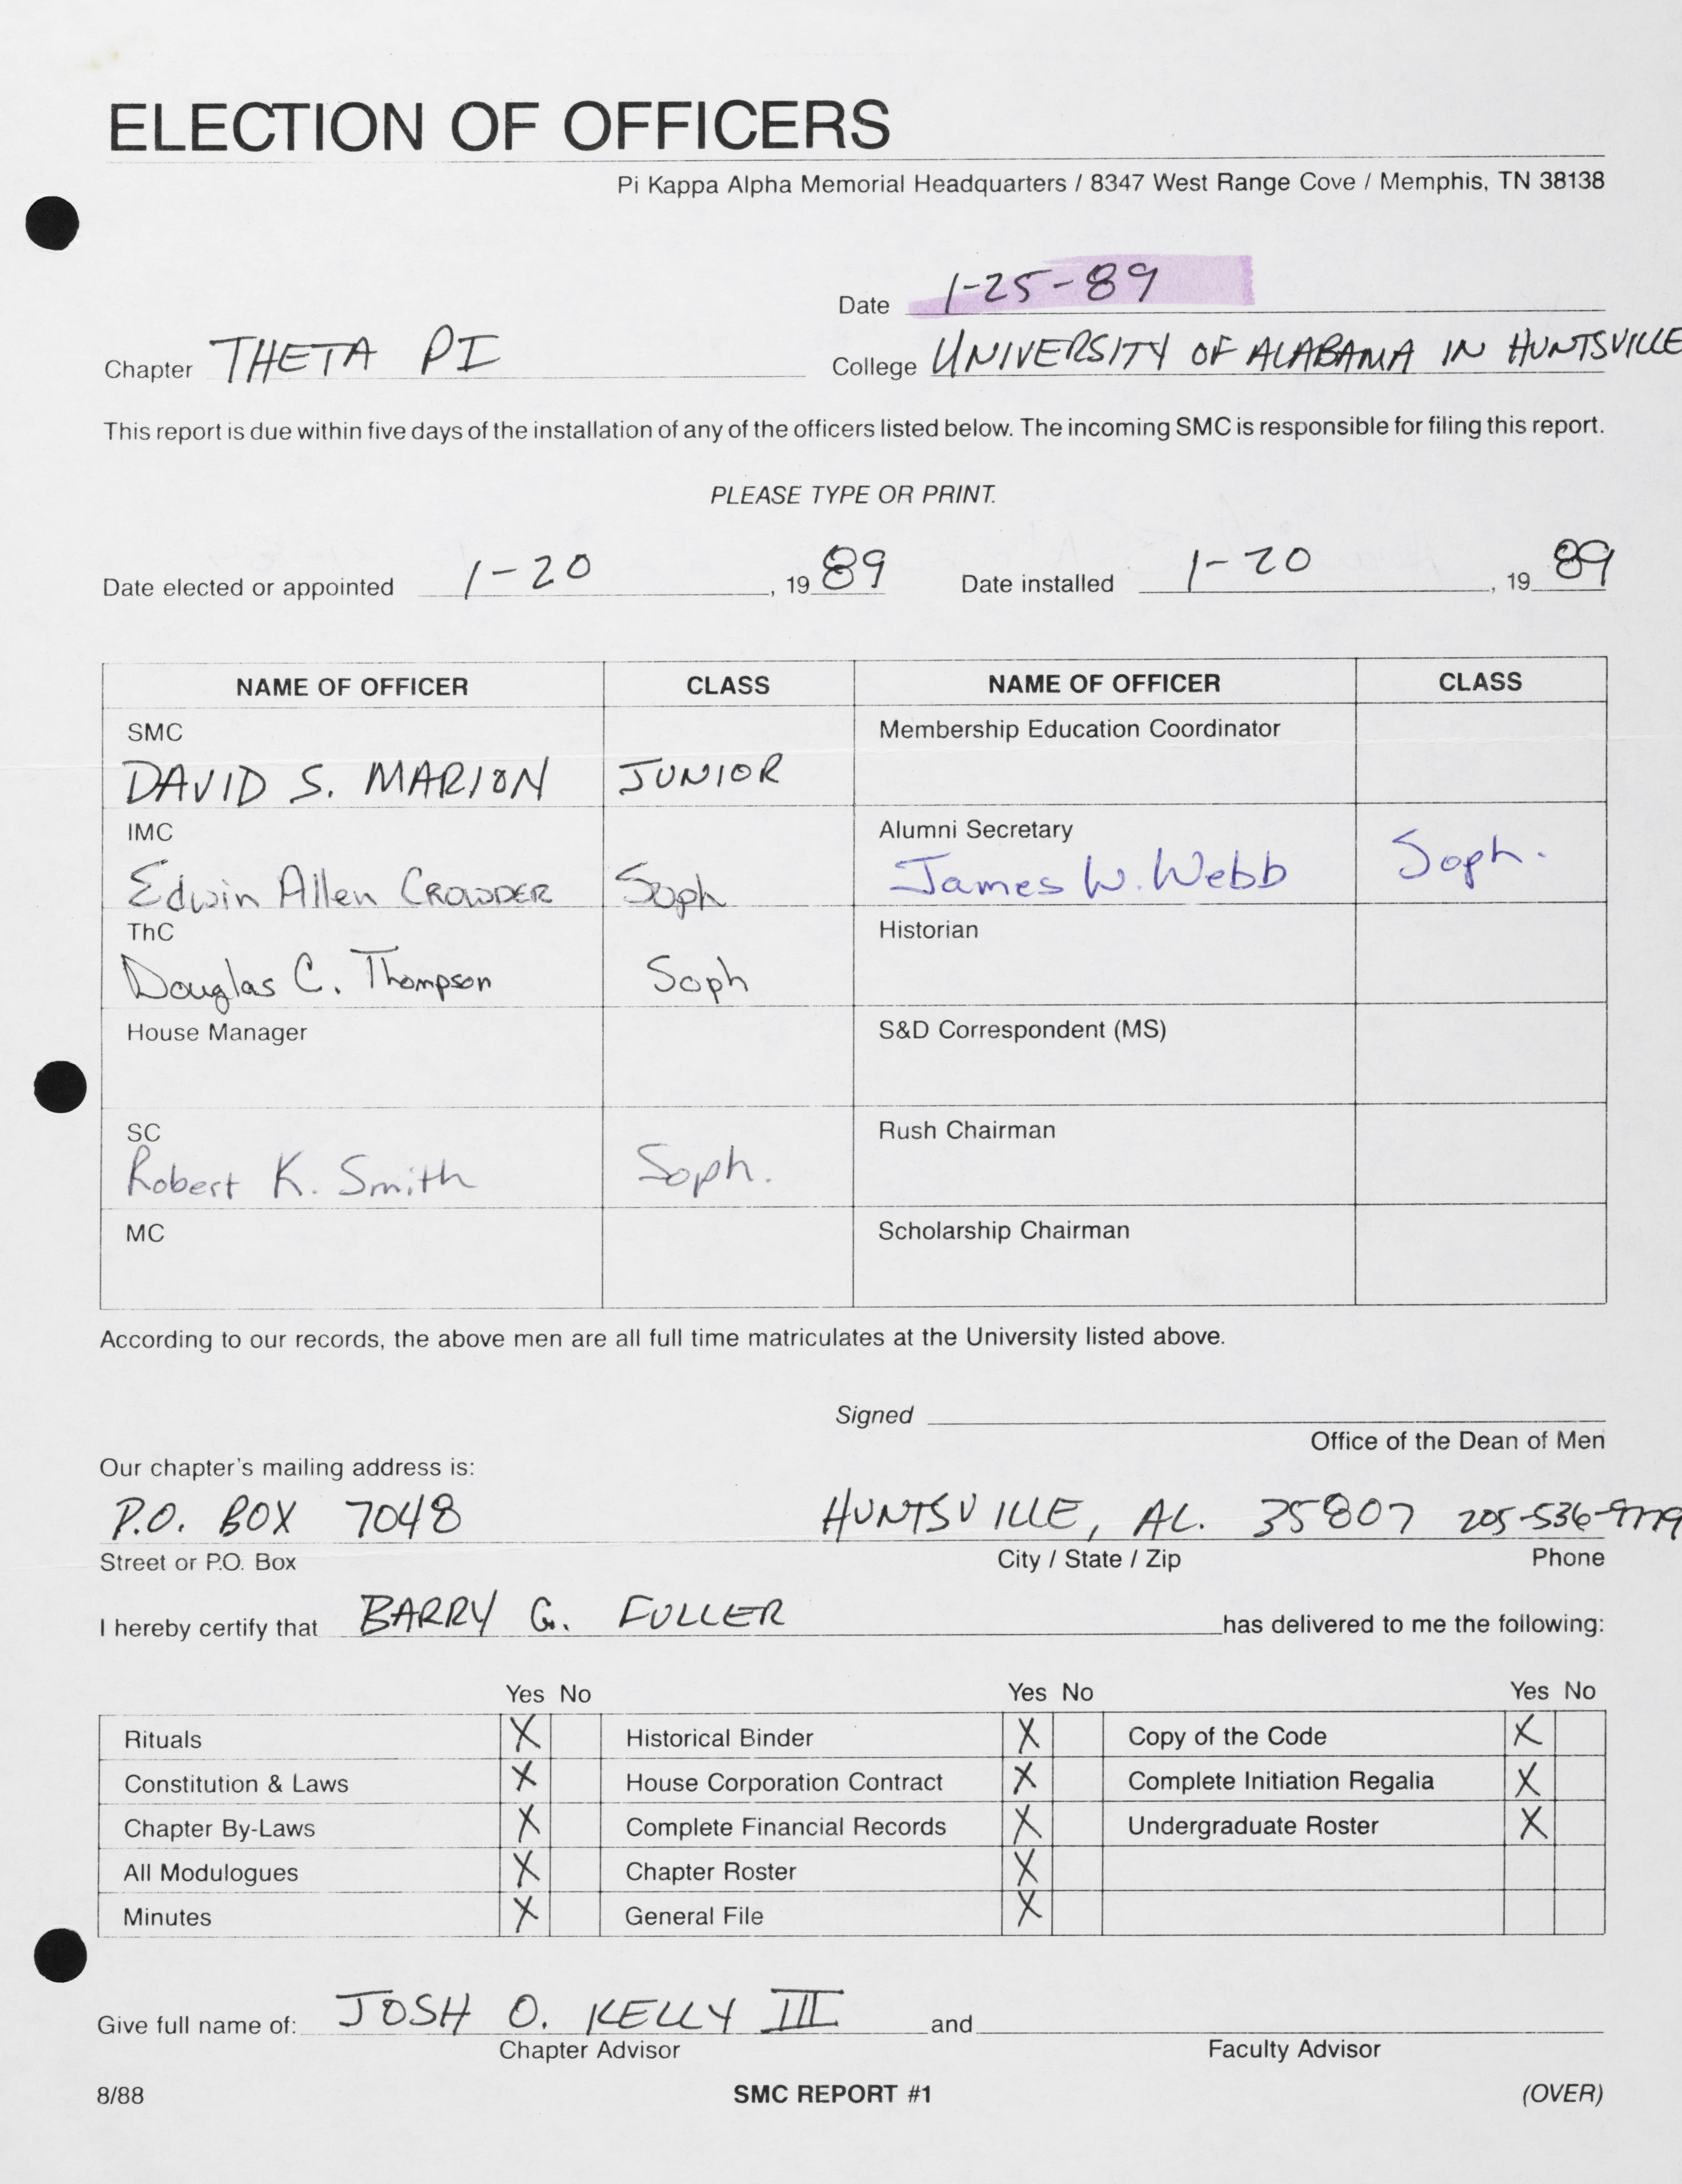 ELECTION OF OFFICERS
Pi Kappa Alpha Memorial Headquarters / 8347 West Range Cove / Memphis, TN 38138
Date 1-25-89
Chapter THETA PI College UNIVERSITY OF ALABAMA IN HUNTSVILLE
This report is due within five days of the installation of any of the officers listed below. The incoming SMC is responsible for filing this report.
PLEASE TYPE OR PRINT.
Date elected or appointed 1-20, 19 89 Date installed 1-20, 19 89
NAME OF OFFICER CLASS NAME OF OFFICER CLASS
SMC Membership Education Coordinator
DAVID S. MARION JUNIOR
IMC Alumni Secretary
Edwin Allen CROWDER Soph James W. Webb Soph.
ThC Historian
Douglas C. Thompson Soph
House Manager S&D Correspondent (MS)
SC Rush Chairman
Robert K. Smith Soph.
MC Scholarship Chairman
According to our records, the above men are all full time matriculates at the University listed above.
Signed
Office of the Dean of Men
Our chapter's mailing address is:
P.O. BOX 7048 HUNTSVILLE, AL. 35807 205-536-9779
Street or P.O. Box City / State / Zip Phone
I hereby certify that BARRY G. FULLER has delivered to me the following:
Yes No Yes No Yes No
Rituals X Historical Binder X Copy of the Code X
Constitution & Laws X House Corporation Contract X Complete Initiation Regalia X
Chapter By-Laws X Complete Financial Records X Undergraduate Roster X
All Modulogues X Chapter Roster X
Minutes X General File X
Give full name of: JOSH O. KELLY III and
Chapter Advisor Faculty Advisor
8/88 SMC REPORT #1 (OVER)